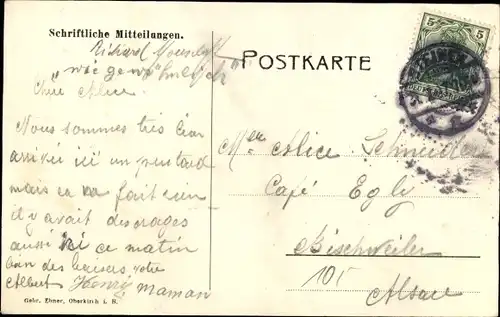 Schriftliche Mitteilungen.
POSTKARTE
5 5
Richard
"wie gewöhnlich"
Chère Alice.
Nous sommes très bien
arrivés ici un peu tard
mais ça va fait rien
il y avait des orages
aussi ici ce matin
bien des baisers votre
Albert Henry maman
Mlle Alice Schneider
Café Egly
Bischweiler
105
Alsace
Gebr. Ebner, Oberkirch i. B.